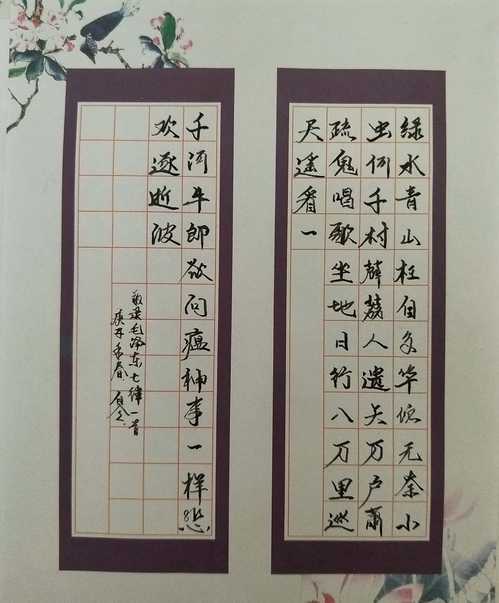 绿水青山枉自多华佗无奈小
虫何千村薜荔人遗矢万户萧
疏鬼唱歌坐地日行八万里巡
天遥看一
千河牛郎欲问瘟神事一样悲
欢逐逝波
敬录毛泽东七律一首
庚子季春